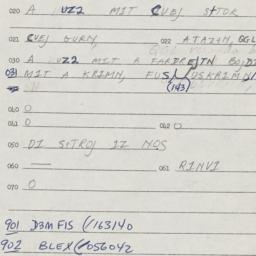 020 A UZ2 MIT CUBJ STTOR
021 CUEJ GURN, 022 ATAZTN, QGL
030 A UZ2 MIT A FARDREJTN BOJD
031 MIT A KRIMN, FUS/USKRIMN
(143)
040 O
041 O 042 O
050 DI STROJ IZ NQS
060 — 061 RINVI
070 O
901 D3MFIS (/163140
902 BLEX (/056042